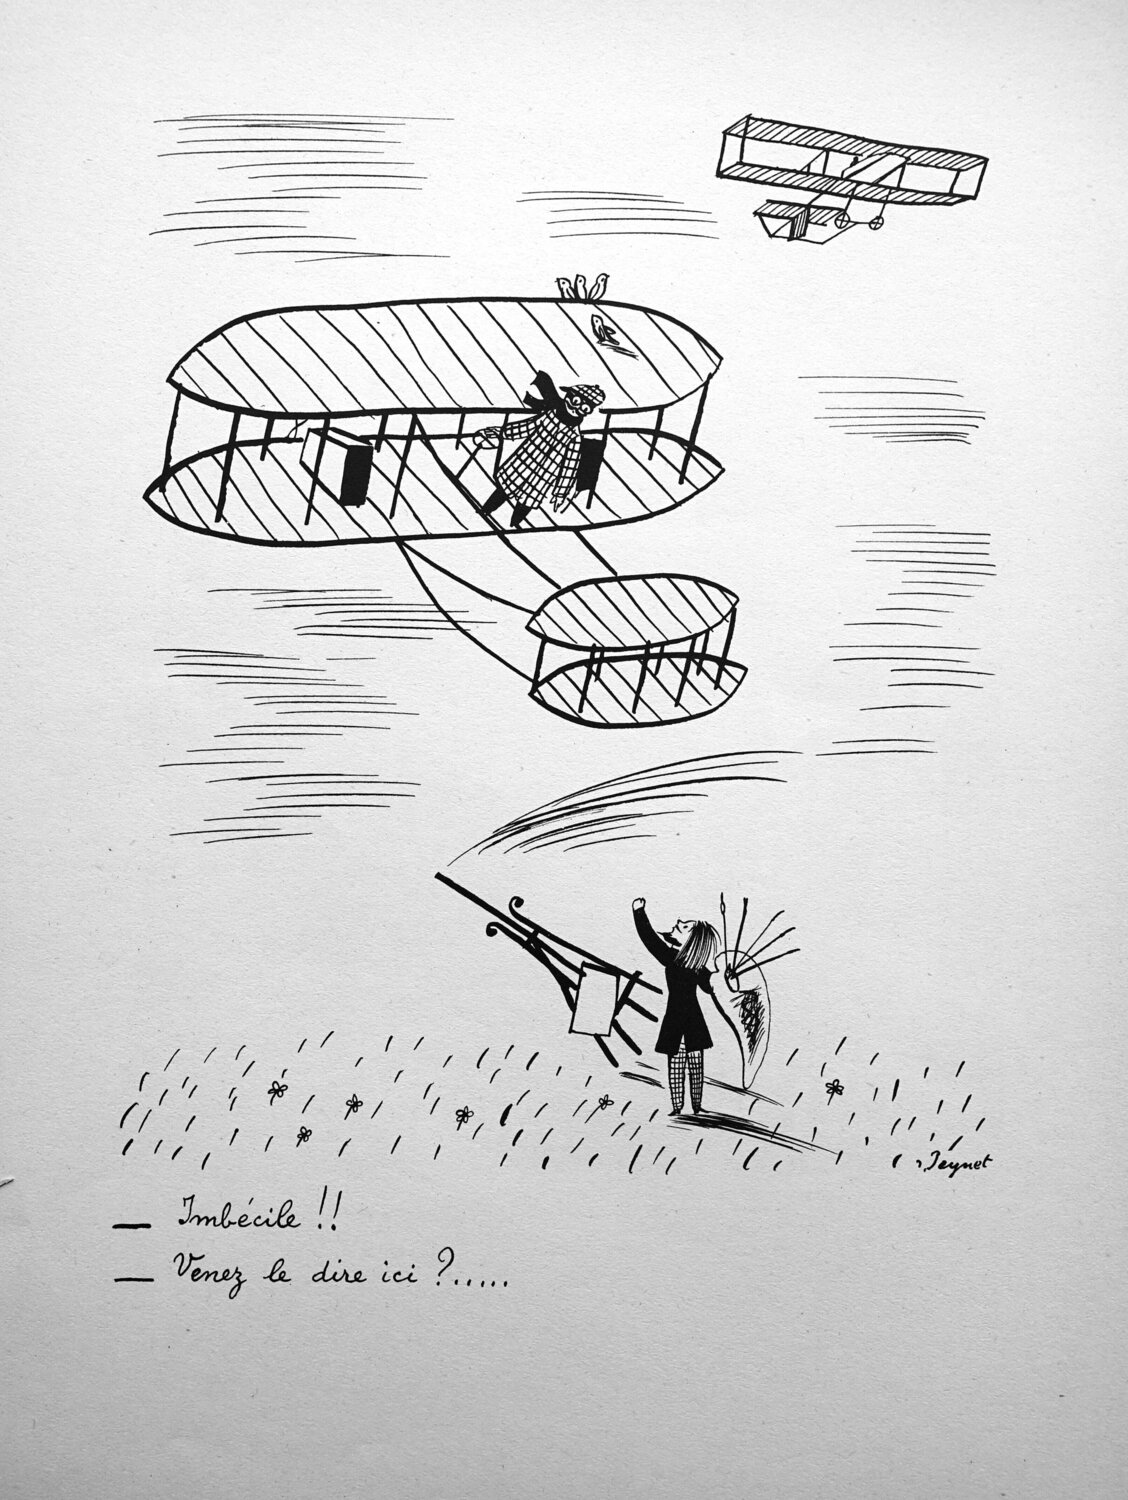 r. Peynet
— Imbécile !!
— Venez le dire ici ?.....